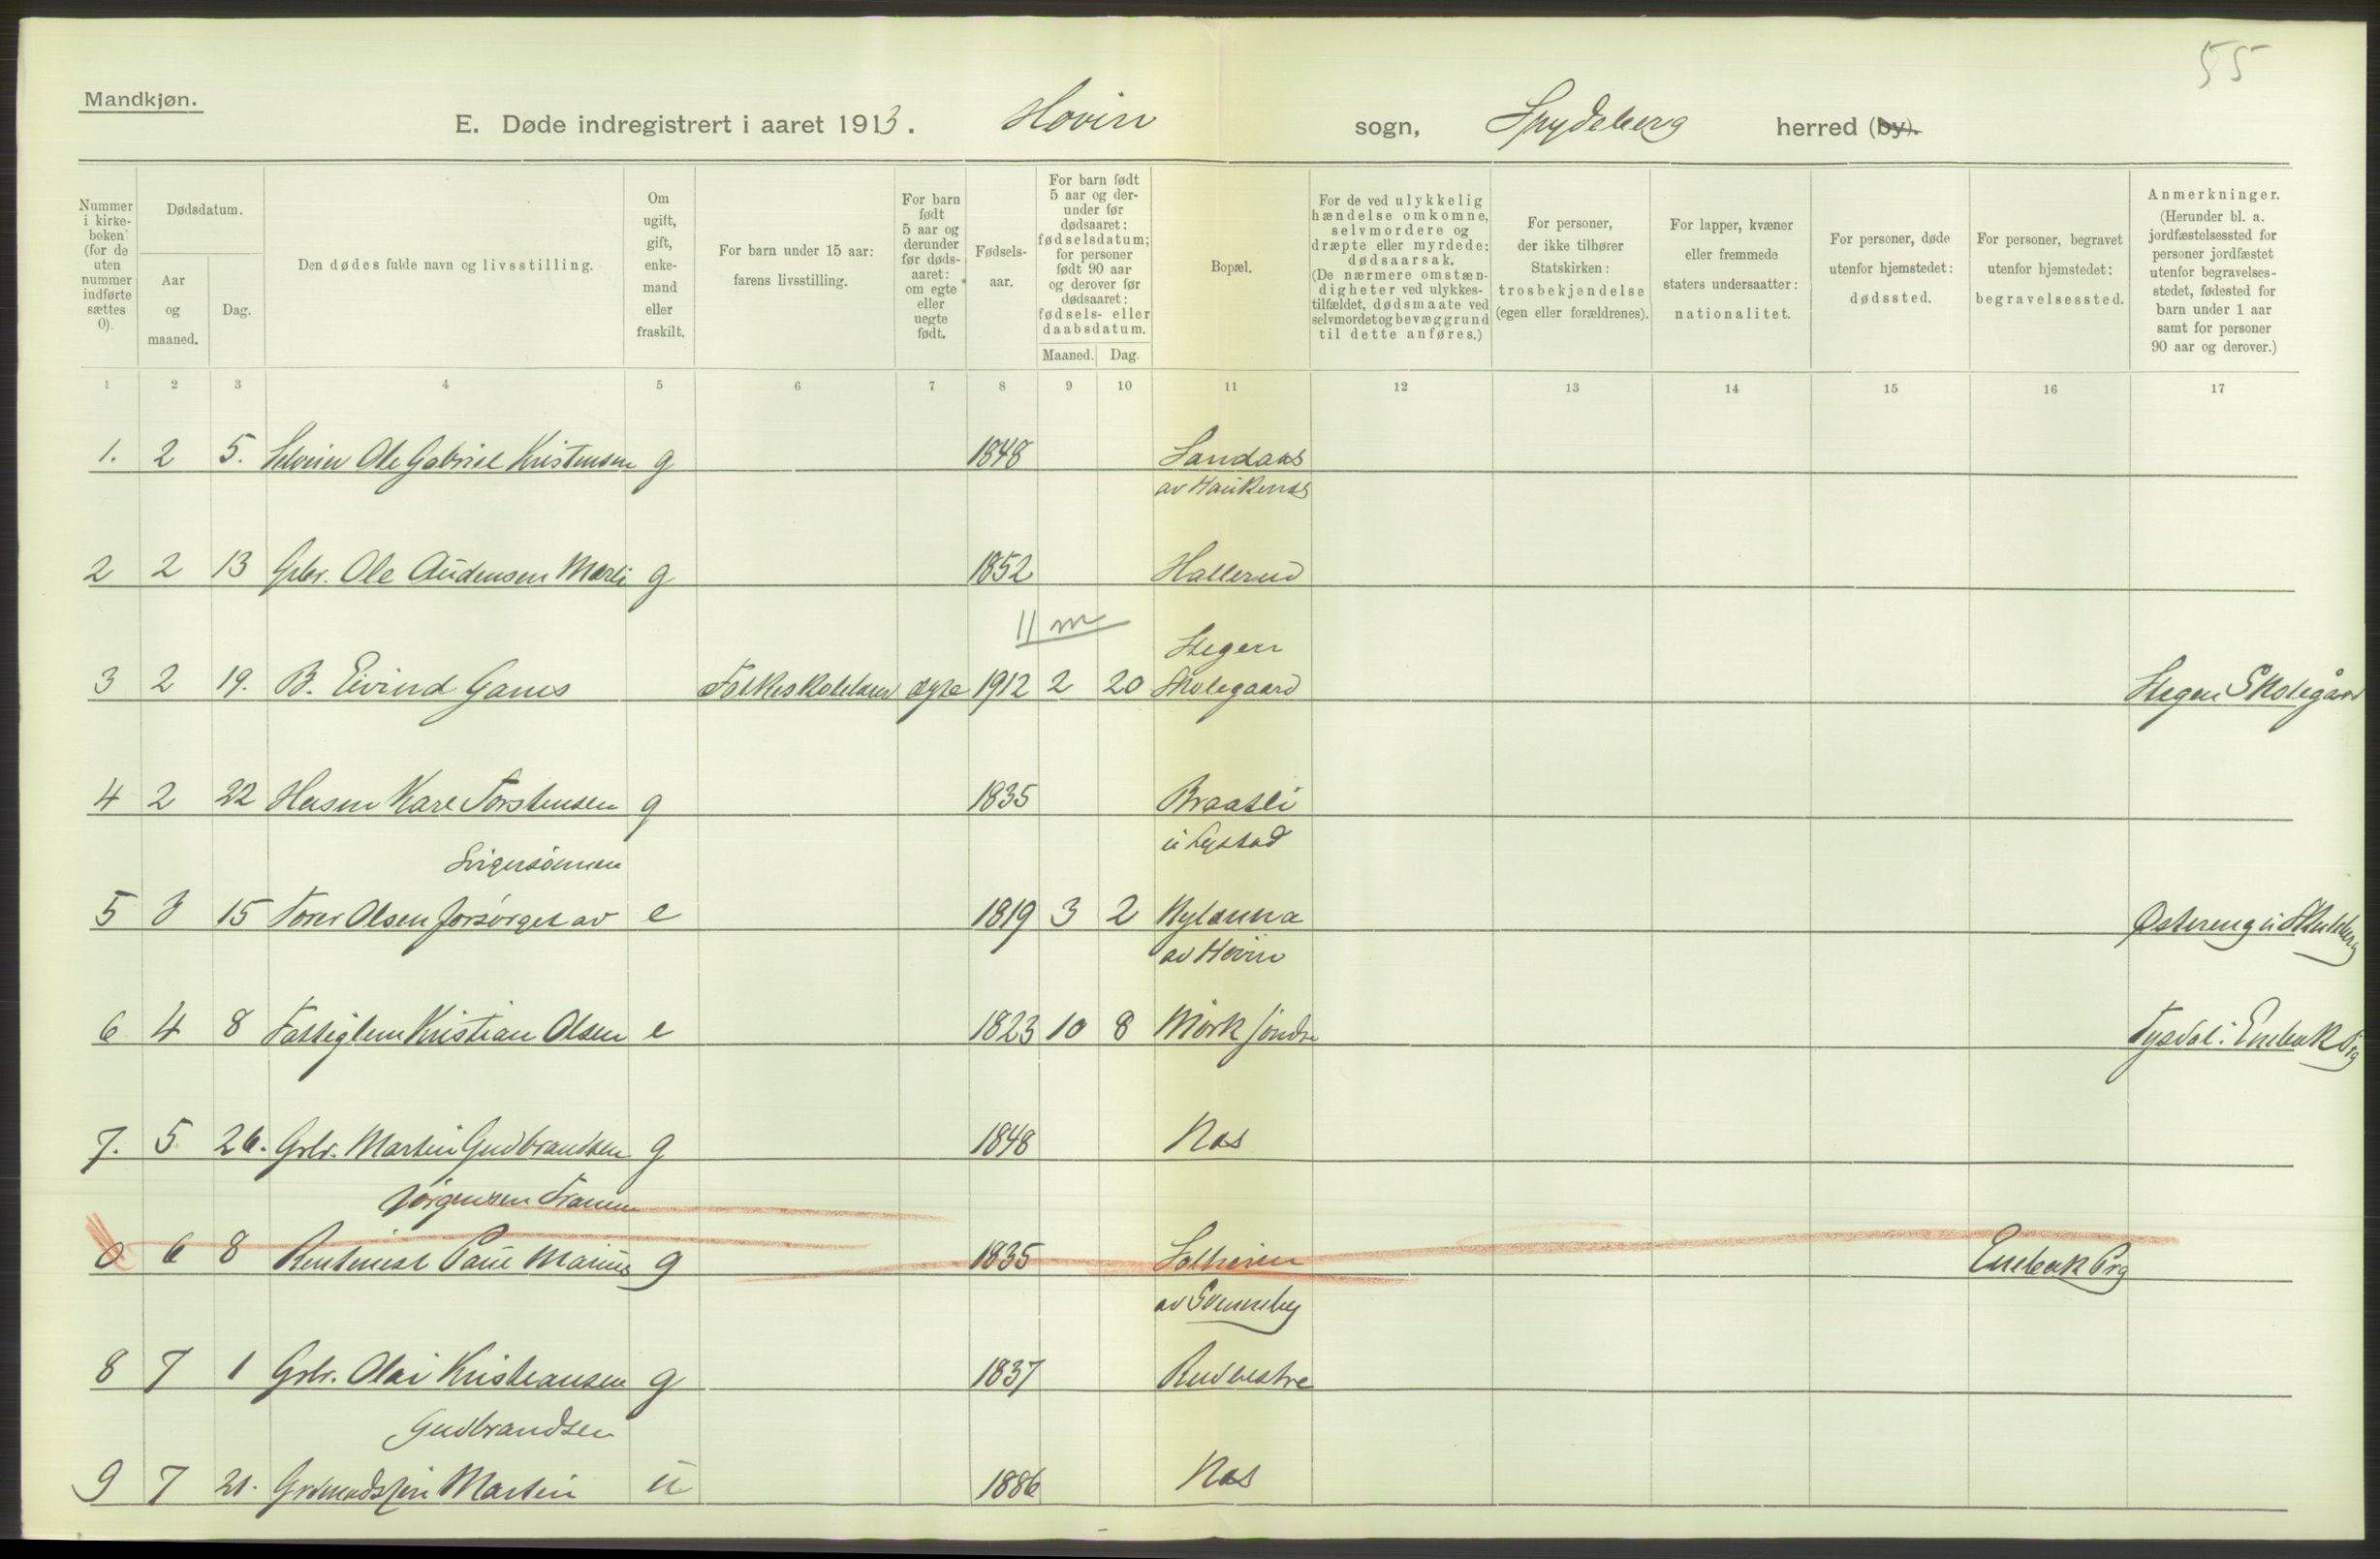 55
Mandkjøn.
E. Døde indregistrert i aaret 1913. Hovin sogn, Spydeberg herred (by).
Nummer i kirke-boken (for de uten nummer indførte sættes 0).
Dødsdatum.
Aar og maaned.
Dag.
Den dødes fulde navn og livsstilling.
Om ugift, gift, enke-mand eller fraskilt.
For barn under 15 aar: farens livsstilling.
For barn født 5 aar og derunder før døds-aaret: om egte eller uegte født.
Fødsels-aar.
For barn født 5 aar og der-under før dødsaaret: fødselsdatum; for personer født 90 aar og derover før dødsaaret: fødsels- eller daabsdatum.
Maaned. Dag.
Bopæl.
For de ved ulykkelig hændelse omkomne, selvmordere og dræpte eller myrdede: dødsaarsak. (De nærmere omstæn-digheter ved ulykkes-tilfældet, dødsmaate ved selvmordet og bevæggrund til dette anføres.)
For personer, der ikke tilhører Statskirken: trosbekjendelse (egen eller forældrenes).
For lapper, kvæner eller fremmede staters undersaatter: nationalitet.
For personer, døde utenfor hjemstedet: dødssted.
For personer, begravet utenfor hjemstedet: begravelsessted.
Anmerkninger. (Herunder bl. a. jordfæstelsessted for personer jordfæstet utenfor begravelses-stedet, fødested for barn under 1 aar samt for personer 90 aar og derover.)
1 2 3 4 5 6 7 8 9 10 11 12 13 14 15 16 17
1. 2 5. Ole Gabriel Kristensen g 1848
av Haukenes
2 2 13 Gbr. Ole Audensen Mørli g 1852 Hallerud
11 m
Stegen
3 2 19. B. Eivind Garnes Folkeskolelærer egte 1912 2 20 Skolegaard Stegen Skolegård
4 2 22 Husm Karl Torstensen g 1835 Braatli
u Lystad
Svigersönnen
5 3 15 Torer Olsen forsørget av e 1819 3 2 Nylænna Østereng u
av Hovin
6 4 8 Fattiglem Kristian Olsen e 1823 10 8 Mörk söndre Enebak Prg
7. 5 26. Grbr. Martin Gudbrandsen g 1848 Nas
Jörgensen
0 6 8 Rentenist Paul Marius g 1835 Solheim Enebak Prg
av Svenneby
8 7 1 Grbr. Olai Kristiansen g 1837 Rud vestre
Gudbrandsen
9 7 21. Martin u 1886 Nas